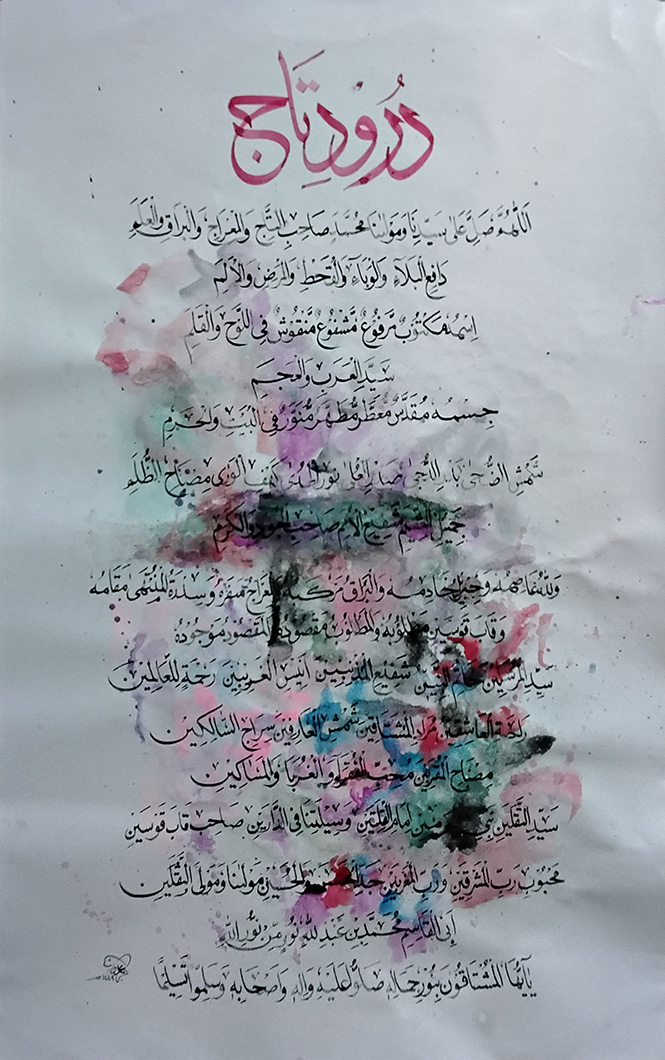 دُرُودِ تَاج
اَللّٰهُمَّ صَلِّ عَلٰى سَيِّدِنَا وَمَوْلٰينَا مُحَمَّدٍ صَاحِبِ التَّاجِ وَالْمِعْرَاجِ وَالْبُرَاقِ وَالْعَلَمِ
دَافِعِ الْبَلَآءِ وَالْوَبَآءِ وَالْقَحْطِ وَالْمَرَضِ وَالْاَلَمِ
اِسْمُهٗ مَكْتُوْبٌ مَّرْفُوْعٌ مَّشْفُوْعٌ مَّنْقُوْشٌ فِى اللَّوْحِ وَالْقَلَمِ
سَيِّدِ الْعَرَبِ وَالْعَجَمِ
جِسْمُهٗ مُقَدَّسٌ مُّعَطَّرٌ مُّطَهَّرٌ مُّنَوَّرٌ فِى الْبَيْتِ وَالْحَرَمِ
شَمْسِ الضُّحٰى بَدْرِ الدُّجٰى صَدْرِ الْعُلٰى نُوْرِ الْهُدٰى كَهْفِ الْوَرٰى مِصْبَاحِ الظُّلَمِ
جَمِيْلِ الشِّيَمِ شَفِيْعِ الْاُمَمِ صَاحِبِ الْجُوْدِ وَالْكَرَمِ
وَاللّٰهُ عَاصِمُهٗ وَجِبْرِيْلُ خَادِمُهٗ وَالْبُرَاقُ مَرْكَبُهٗ وَالْمِعْرَاجُ سَفَرُهٗ وَسِدْرَةُ الْمُنْتَهٰى مَقَامُهٗ
وَقَابَ قَوْسَيْنِ مَطْلُوْبُهٗ وَالْمَطْلُوْبُ مَقْصُوْدُهٗ وَالْمَقْصُوْدُ مَوْجُوْدُهٗ
سَيِّدِ الْمُرْسَلِيْنَ خَاتَمِ النَّبِيِّيْنَ شَفِيْعِ الْمُذْنِبِيْنَ اَنِيْسِ الْغَرِيْبِيْنَ رَحْمَةٍ لِّلْعَالَمِيْنَ
رَاحَةِ الْعَاشِقِيْنَ مُرَادِ الْمُشْتَاقِيْنَ شَمْسِ الْعَارِفِيْنَ سِرَاجِ السَّالِكِيْنَ
مِصْبَاحِ الْمُقَرَّبِيْنَ مُحِبِّ الْفُقَرَآءِ وَالْغُرَبَآءِ وَالْمَسَاكِيْنِ
سَيِّدِ الثَّقَلَيْنِ نَبِيِّ الْحَرَمَيْنِ اِمَامِ الْقِبْلَتَيْنِ وَسِيْلَتِنَا فِى الدَّارَيْنِ صَاحِبِ قَابَ قَوْسَيْنِ
مَحْبُوْبِ رَبِّ الْمَشْرِقَيْنِ وَرَبِّ الْمَغْرِبَيْنِ جَدِّ الْحَسَنِ وَالْحُسَيْنِ مَوْلٰينَا وَمَوْلَى الثَّقَلَيْنِ
اَبِى الْقَاسِمِ مُحَمَّدِ بْنِ عَبْدِ اللّٰهِ نُوْرٍ مِّنْ نُّوْرِ اللّٰهِ
يٰٓاَيُّهَا الْمُشْتَاقُوْنَ بِنُوْرِ جَمَالِهٖ صَلُّوْا عَلَيْهِ وَاٰلِهٖ وَاَصْحَابِهٖ وَسَلِّمُوْا تَسْلِيْمًا